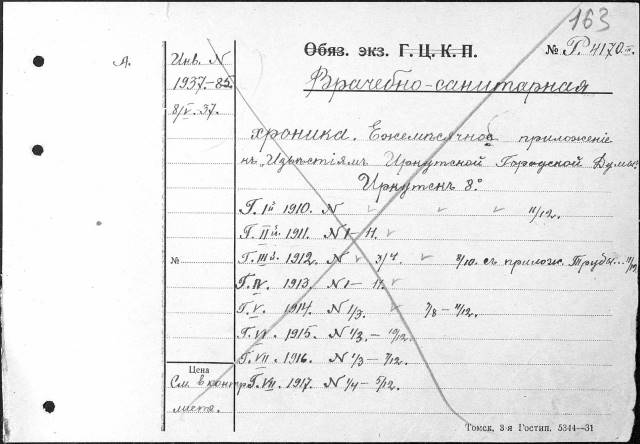 163
А. Инв. N Обяз. экз. Г. Ц. К. П. № Р. 4170
1937.-85. Врачебно-санитарная
8/V. 37.
хроника. Ежемѣсячное приложеніе
къ „Извѣстіямъ Иркутской Городской Думы“.
Иркутскъ 8°
Г. I й 1910. N 11/12.
Г. II й. 1911. N 1 - 11.
№ Г. III й. 1912. N 3/4 8/10. съ прилож. Труды...
Г. IV. 1913. N 1 - 11.
Г. V. 1914. N 1/3. 7/8 - 11/12.
Г. VI. 1915. N 1/3. - 10/12.
Г. VII. 1916. N 1/3 - 7/12.
Цена
См. в контр. Г. VIII. 1917. N 1/4 - 5/12.
листа.
Томск, 3-я Гостип. 5344—31